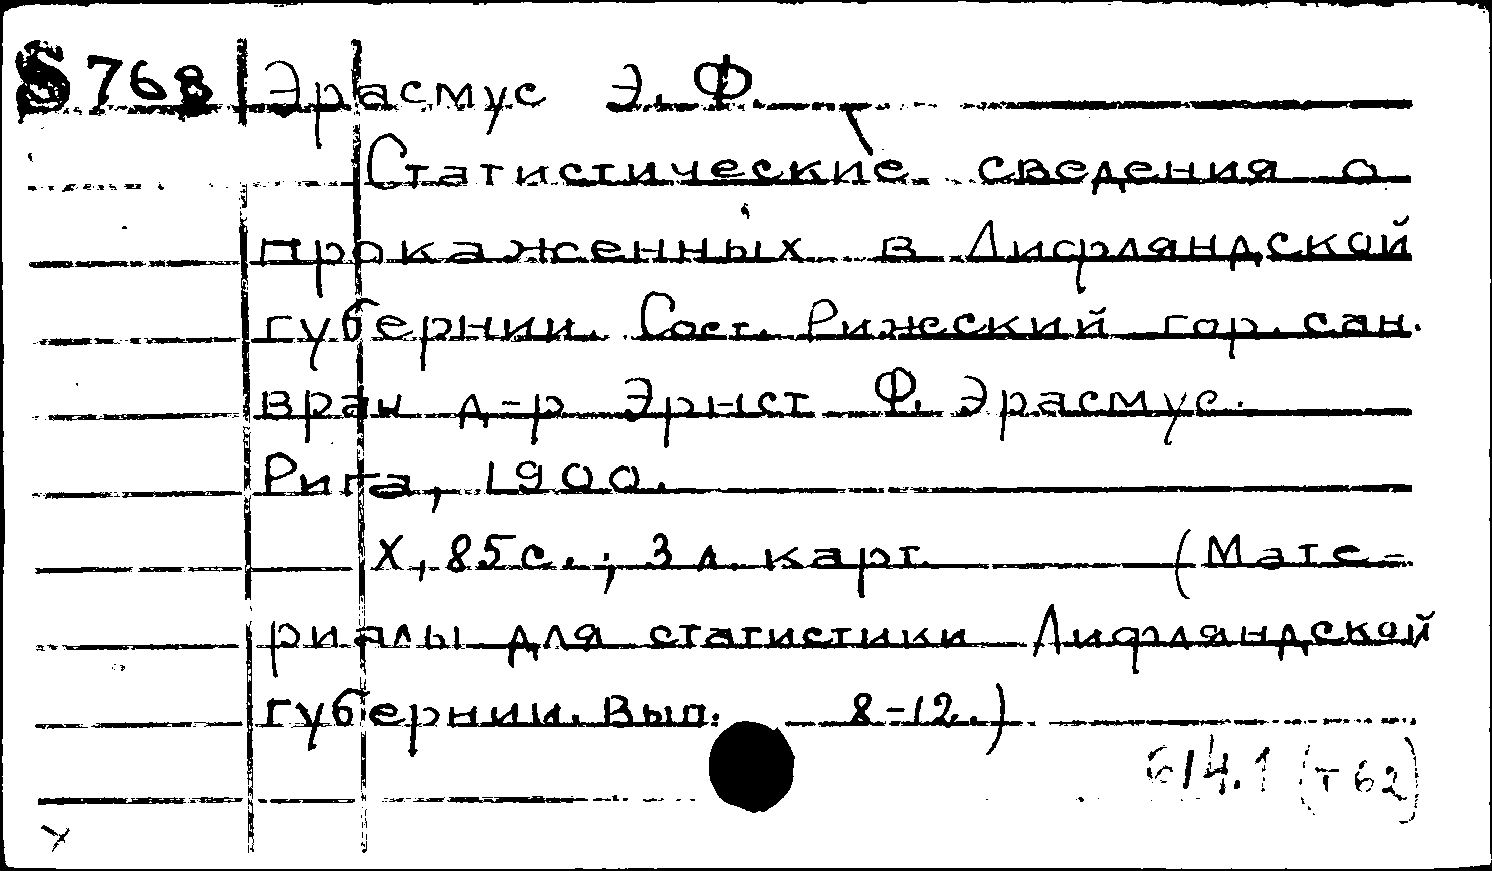 S 768 Эрасмус Э. Ф.
Статистические сведения о
прокаженных в Лифляндской
губернии. Сост. Рижский гор. сан.
врач д-р Эрнст Ф. Эрасмус.
Рига, 1900.
X, 85 с.; 3 л. карт. (Мате-
риалы для статистики Лифляндской
губернии. Вып. 8-12.)
614.1 (Т62)